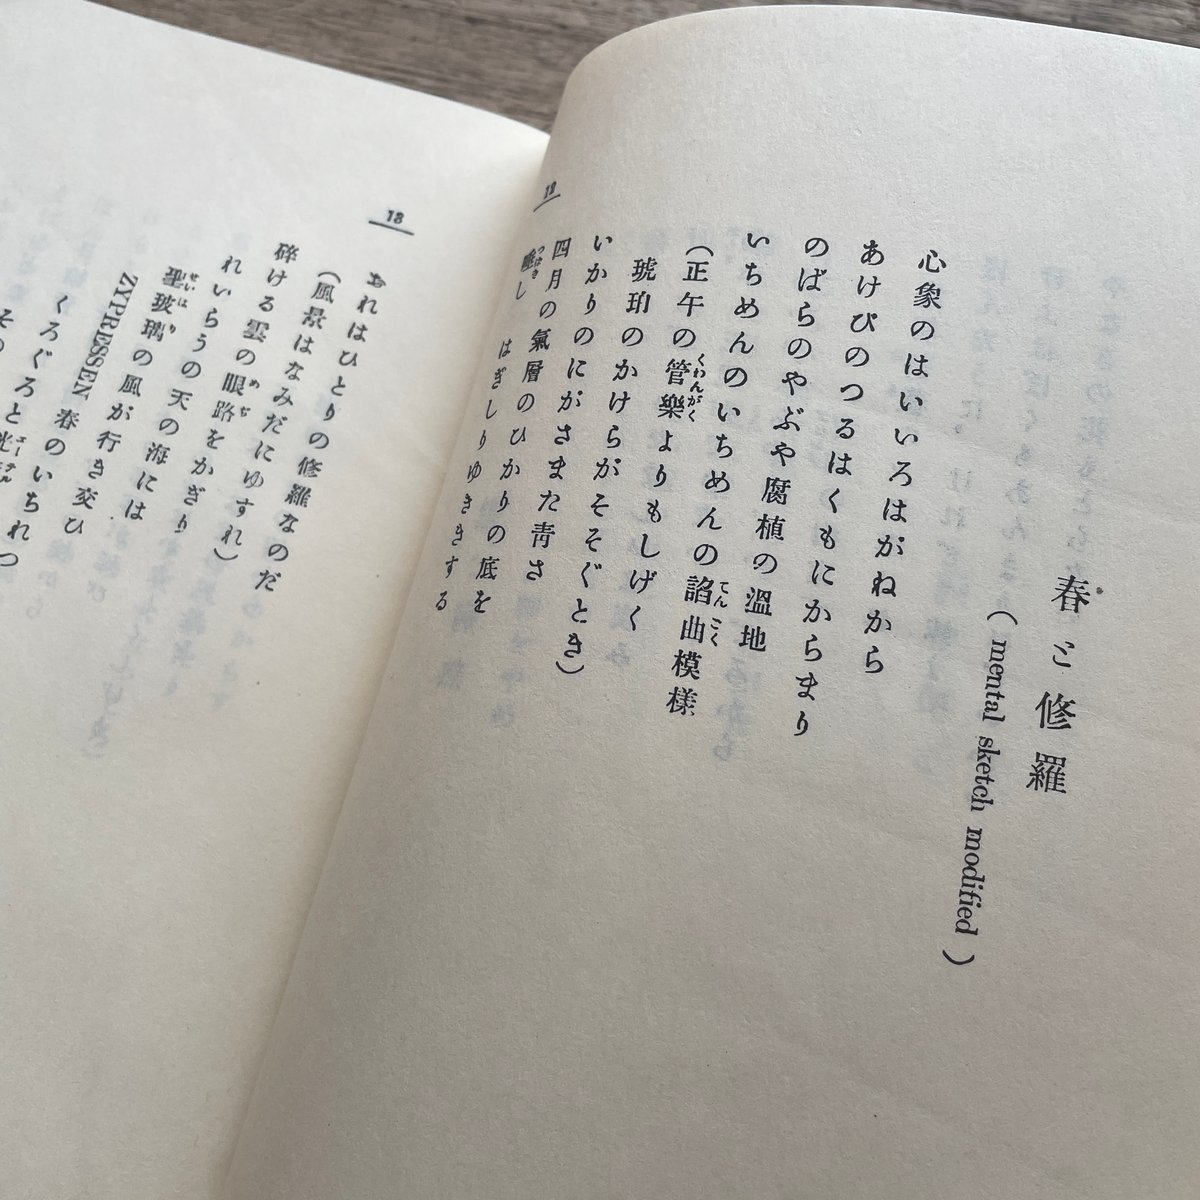 春と修羅
(mental sketch modified)
心象のはいいろはがねから
あけびのつるはくもにからまり
のばらのやぶや腐植の溫地
いちめんのいちめんの諂曲模樣
てんごく
(正午の管樂よりもしげく
くわんがく
琥珀のかけらがそそぐとき)
いかりのにがさまた靑さ
四月の氣層のひかりの底を
唾し はぎしりゆききする
つばき
19
18
おれはひとりの修羅なのだ
(風景はなみだにゆすれ)
碎ける雲の眼路をかぎり
めぢ
れいらうの天の海には
聖玻璃の風が行き交ひ
せいはり
ZYPRESSEN 春のいちれつ
くろぐろと光